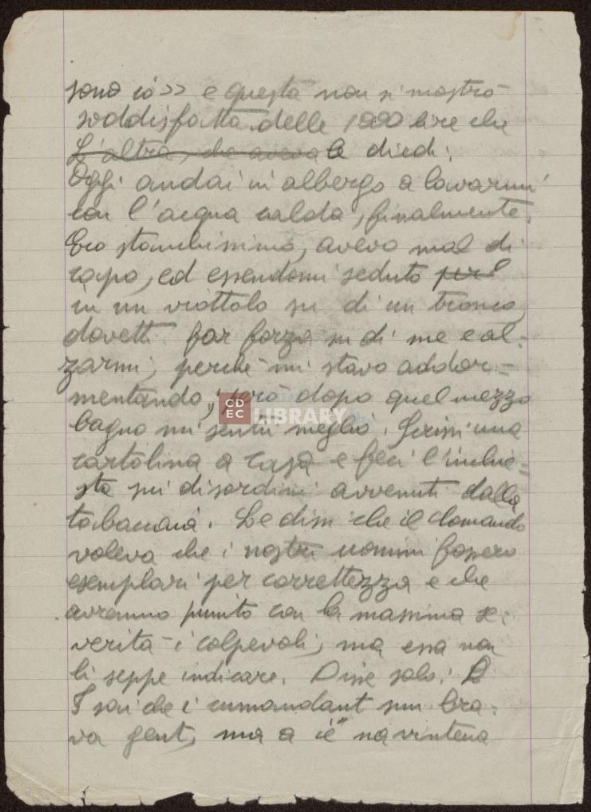 sono io>> e questa non si mostrò
soddisfatta delle 1000 lire che
L'altra, che aveva le diedi.
Oggi andai in albergo a lavarmi
con l'acqua calda, finalmente.
Ero stanchissimo, avevo mal di
capo, ed essendomi seduto
in un viottolo su di un tronco
dovetti far forza su di me e al-
zarmi, perché mi stavo addor-
mentando, però dopo quel mezzo
bagno mi sentii meglio. Scrissi una
cartolina a casa e feci l'inchie-
sta sui disordini avvenuti dalla
tabaccaia. Le dissi che il Comando
voleva che i nostri uomini fossero
esemplari per correttezza e che
avremmo punito con la massima se-
verità i colpevoli, ma essa non
li seppe indicare. Disse solo:
I sai che i cumandant sun bra-
va gent, ma a i è na vintena
CDEC LIBRARY